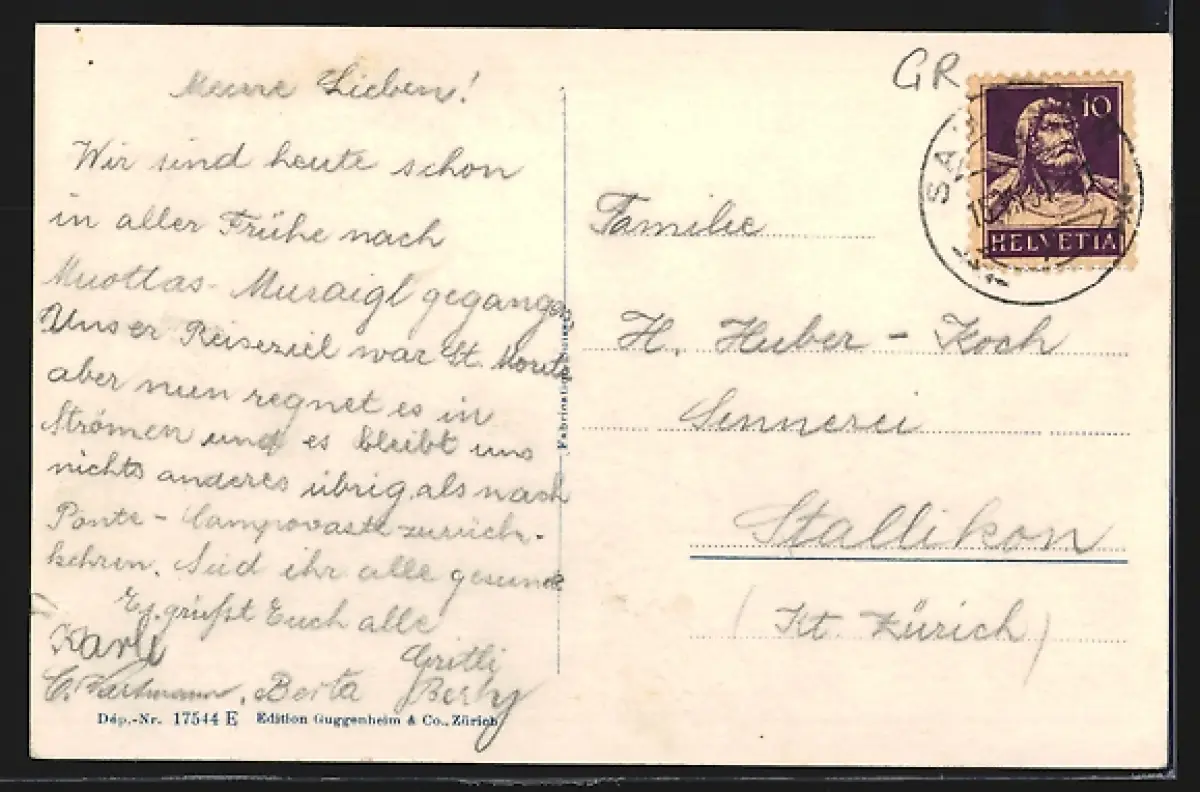 Meine Lieben!
Wir sind heute schon
in aller Frühe nach
Muottas-Muraigl gegangen,
Unser Reiseziel war St. Moritz
aber nun regnet es in
Strömen und es bleibt uns
nichts anderes übrig als nach
Ponte-Campovasto zurück-
kehren. Seid ihr alle gesund
Es grüßt Euch alle
Karli
Gritli
Berta
Dép.-Nr. 17544 E Edition Guggenheim & Co., Zürich
GR
10
HELVETIA
Familie
H. Huber-Koch
Sennerei
Stallikon
(Kt. Zürich)